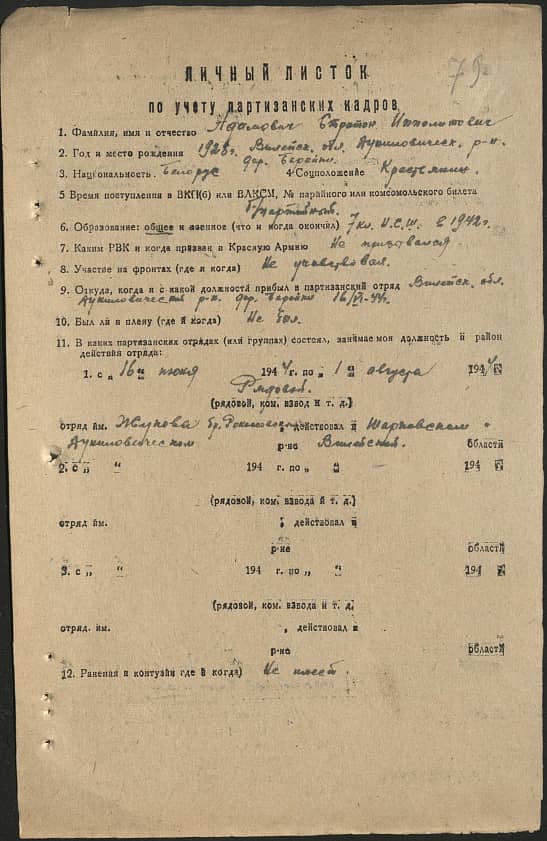 79
ЛИЧНЫЙ ЛИСТОК
по учету партизанских кадров
1. Фамилия, имя и отчество Адамович Стратон Ипполитович
2. Год и место рождения 1928г. Вилейск. обл. Дуниловическ. р-н.
дер. Верейки
3. Национальность. Белорус 4 Соцположение Крестьянин.
5 Время поступления в ВКП(б) или ВЛКСМ, № парийного или комсомольского билета
б/партийный.
6. Образование: общее и военное (что и когда окончил) 7 кл. Н.С.Ш. в 1942г.
7. Каким РВК и когда призван в Красную Армию Не призывался
8. Участие на фронтах (где и когда) Не участвовал.
9. Откуда, когда и с какой должности прибыл в партизанский отряд Вилейск. обл.
Дуниловический р-н. дер. Верейки 16/VI-44г.
10. Был ли в плену (где и когда) Не был.
11. В каких партизанских отрядах (или группах) состоял, занимаемая должность и район
действия отряда:
1. с „ 16 “ июня 194 4 г. по „ 1 “ августа 194 4 г.
Рядовой.
(рядовой, ком. взвод и т. д.)
отряд им. Жукова бр. действовал в Шарковском и
Дуниловическом р-не Вилейской. области
2. с „ “ 194 г. по „ “ 194 г.
(рядовой, ком. взвода и т. д.)
отряд им. , действовал в
р-не области
3. с „ “ 194 г. по „ “ 194 г.
(рядовой, ком. взвода и т. д.
отряд. им. , действовал в
р-не области
12. Ранения и контузии где и когда) Не имеет.